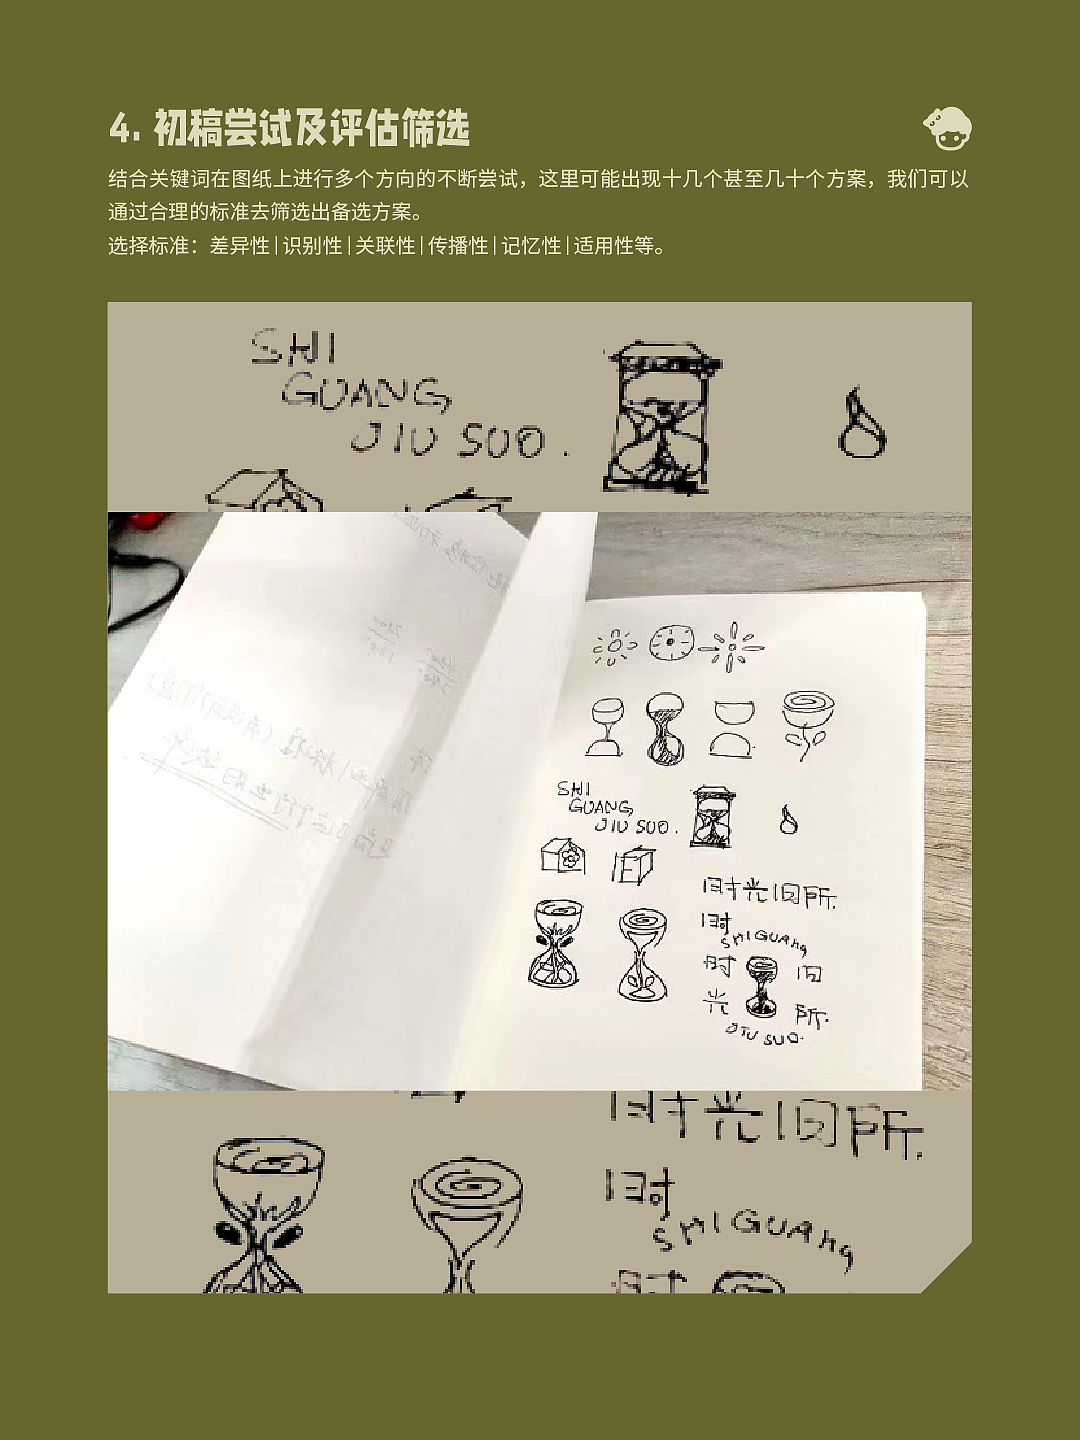 4. 初稿尝试及评估筛选
结合关键词在图纸上进行多个方向的不断尝试，这里可能出现十几个甚至几十个方案，我们可以
通过合理的标准去筛选出备选方案。
选择标准：差异性|识别性|关联性|传播性|记忆性|适用性等。
SHI
GUANG
JIU SUO.
SHI
GUANG
JIU SUO.
时光旧所.
时
SHIGUANG
时 旧
光 所.
JIU SUO.
时光旧所.
时
SHIGUANG
时